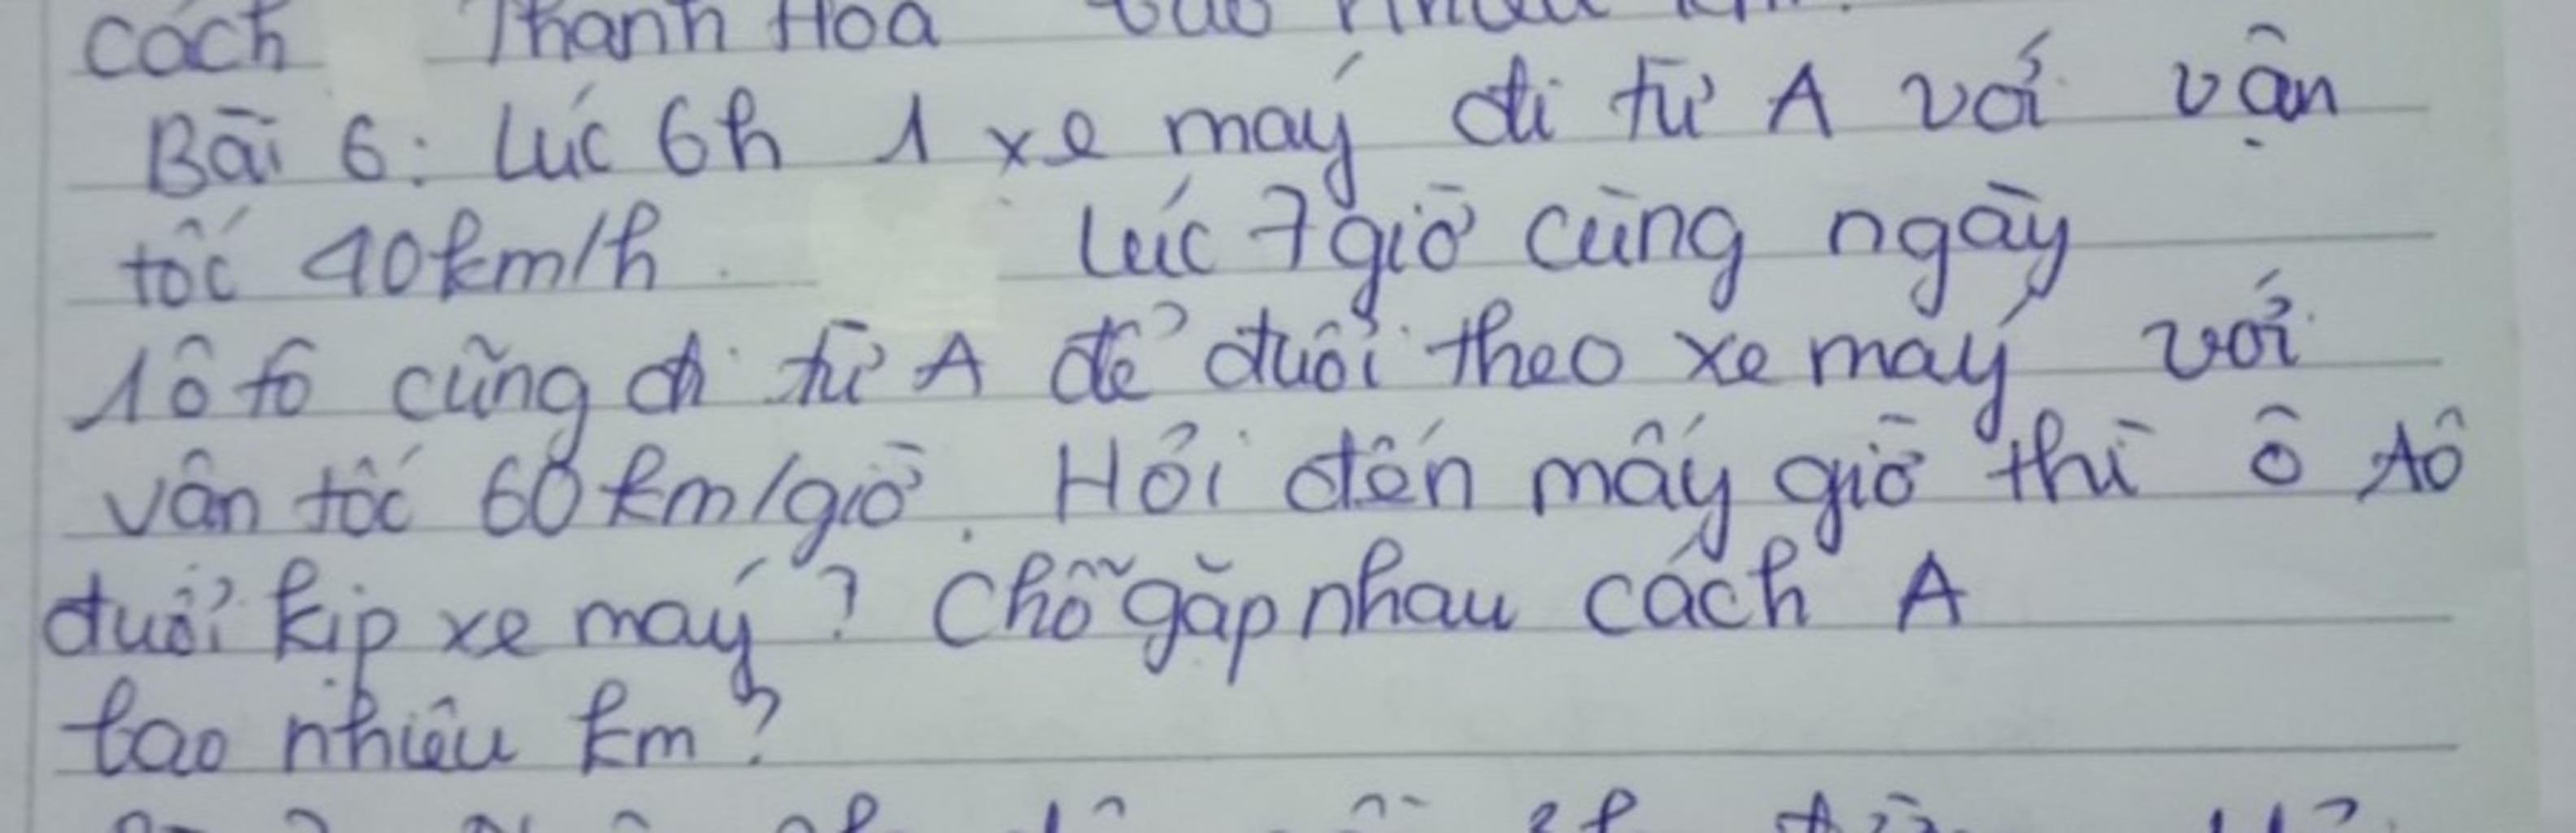 cách Thanh Hoá bao nhiêu km?
Bài 6: Lúc 6h 1 xe máy đi từ A với vận
tốc 40km/h Lúc 7 giờ cùng ngày
1 ô tô cũng đi từ A để đuổi theo xe máy với
vận tốc 60 km/giờ. Hỏi đến mấy giờ thì ô tô
đuổi kịp xe máy? Chỗ gặp nhau cách A
bao nhiêu km?